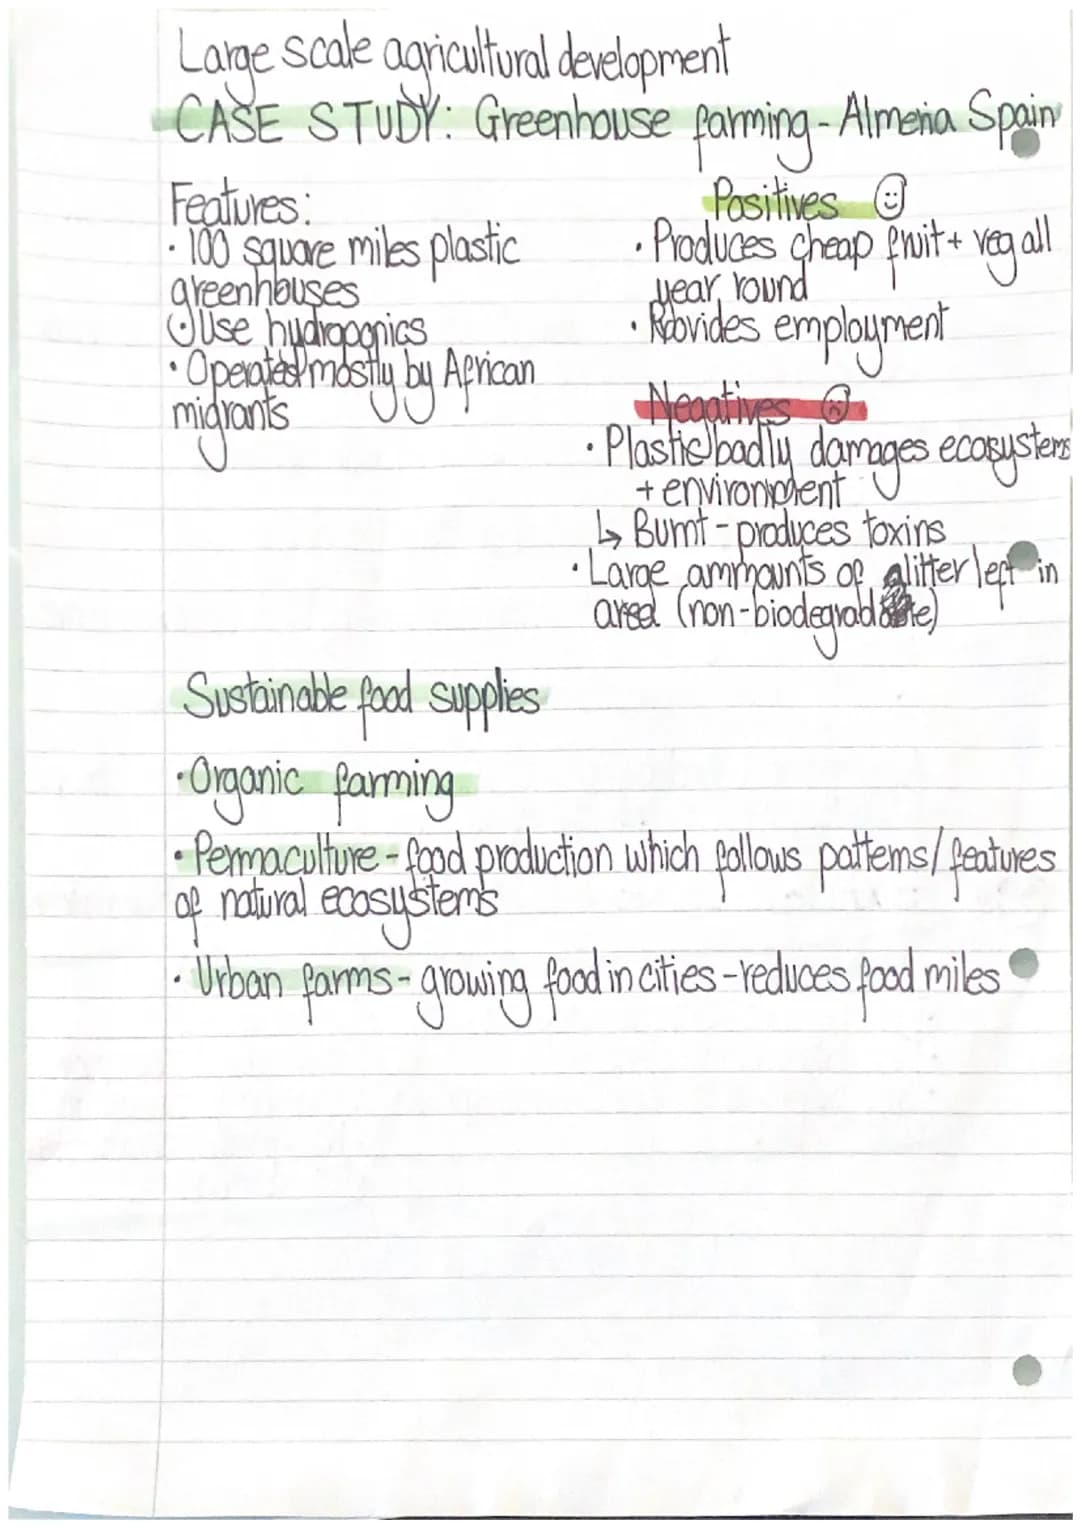 Large scale agricultural development
CASE STUDY: Greenhouse farming - Almeria Spain
Features:
· 100 square miles plastic
greenhouses
· Use hydroponics
· Operated mostly by African
migrants
Positives
· Produces cheap fruit + veg all
year round
· Provides employment
Negatives
· Plastic badly damages ecosystems
+ environment
↳ Burnt - produces toxins
· Large ammounts of litter left in
area (non-biodegradable)
Sustainable food supplies
· Organic farming
· Permaculture - food production which follows patterns/features
of natural ecosystems
· Urban farms - growing food in cities - reduces food miles